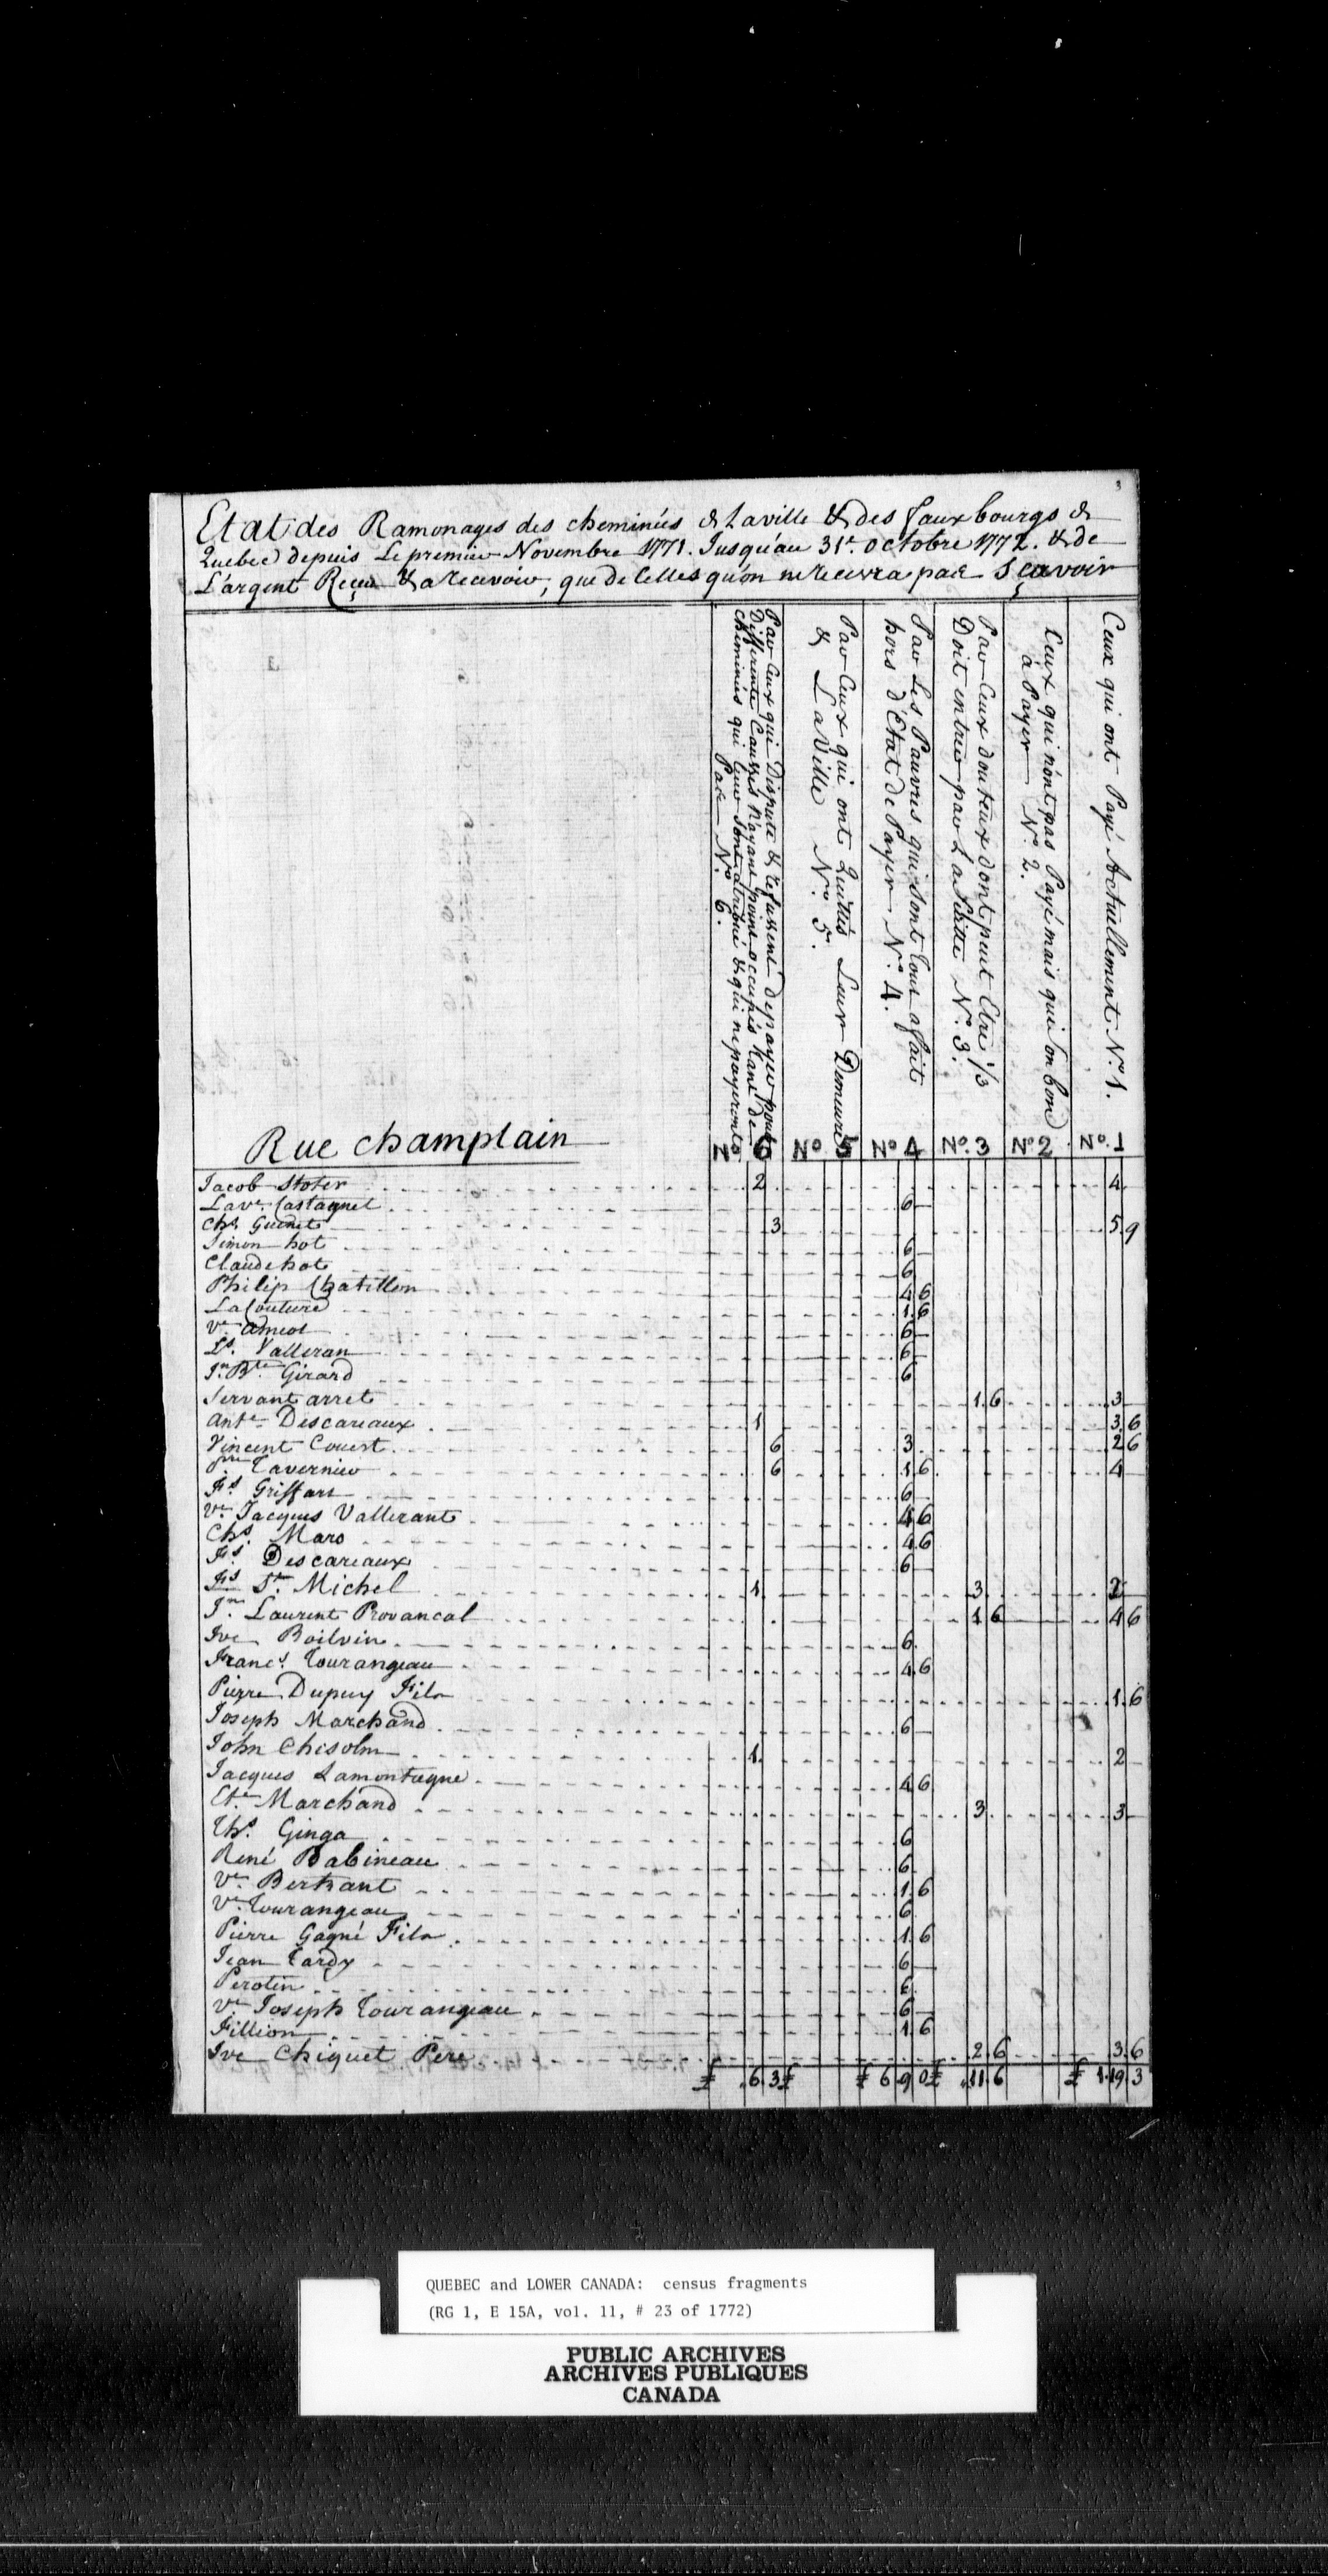 3
Etat des Ramonages des cheminées de la ville & des fauxbourgs de
Quebec depuis le premier Novembre 1771. Jusqu'au 31e. Octobre 1772. & de
L'argent Reçeu & a recevoir, que de Celles qu'on ne recevra pas Sçavoir
Par Ceux qui Dispute & refussent de payer pour
Differente Causses n'ayant point occupés tant de
cheminées qui leur sont atribué & qui ne payeront
Pas N°. 6.
Par Ceux qui ont Quittés Leur Demeure
& La Ville N°. 5.
Par Les Pauvres qui sont tout a fait
hors d'Etat de Payer N°. 4.
Par Ceux douteux dont peut Etre 1/3
Doit entrer par La Suitte N°. 3.
Ceux qui n'ont pas Payé mais qui son bon
à Payer N°. 2.
Ceux qui ont Payé Actuellement N°. 1.
Rue champlain No 6 No 5 No 4 No. 3 No 2 No. 1
Jacob Stoter 2 4
La ve. Castagnet 6
Chs. Guenet 3 5.9
Simon hot 6
Claude hot 6
Philip Chatillon 4 6
La Couture 1.6
ve. Amiot 6
Ls. Valleran 6
Jn. Bte. Girard 6
Servant arret 1.6 3
Ante. Descareaux 1 3.6
Vincent Couest 6 3 2 6
Pre. Tavernier 6 1.6 4
Fs. Griffart 6
Ve. Jacques Vallerant 4 6
Chs. Maro 4.6
Fs. Descareaux 6
Fs. St. Michel 1 3 2
Jn. Laurent Provancal 1 6 4 6
Ive Boilvin 6
Francs. Tourangeau 4.6
Pierre Dupuy Fils 1.6
Joseph Marchand 6
John Chisolm 1 2
Jacques Lamontagne 4 6
Ete. Marchand 3 3
Ths. Ginga 6
René Babineau 6
Ve. Bertrant 1.6
Ve. Tourangeau 6
Pierre Gagné Fils 1.6
Jean Tardy 6
Perotin 6
Ve. Joseph Tourangeau 6
Fillion 1.6
Ive Chiquet Pere 2.6 3.6
£ .6 3 £ £ 6 9 0 £ .11.6 £ 1.19.3
QUEBEC and LOWER CANADA: census fragments
(RG 1, E 15A, vol. 11, # 23 of 1772)
PUBLIC ARCHIVES
ARCHIVES PUBLIQUES
CANADA